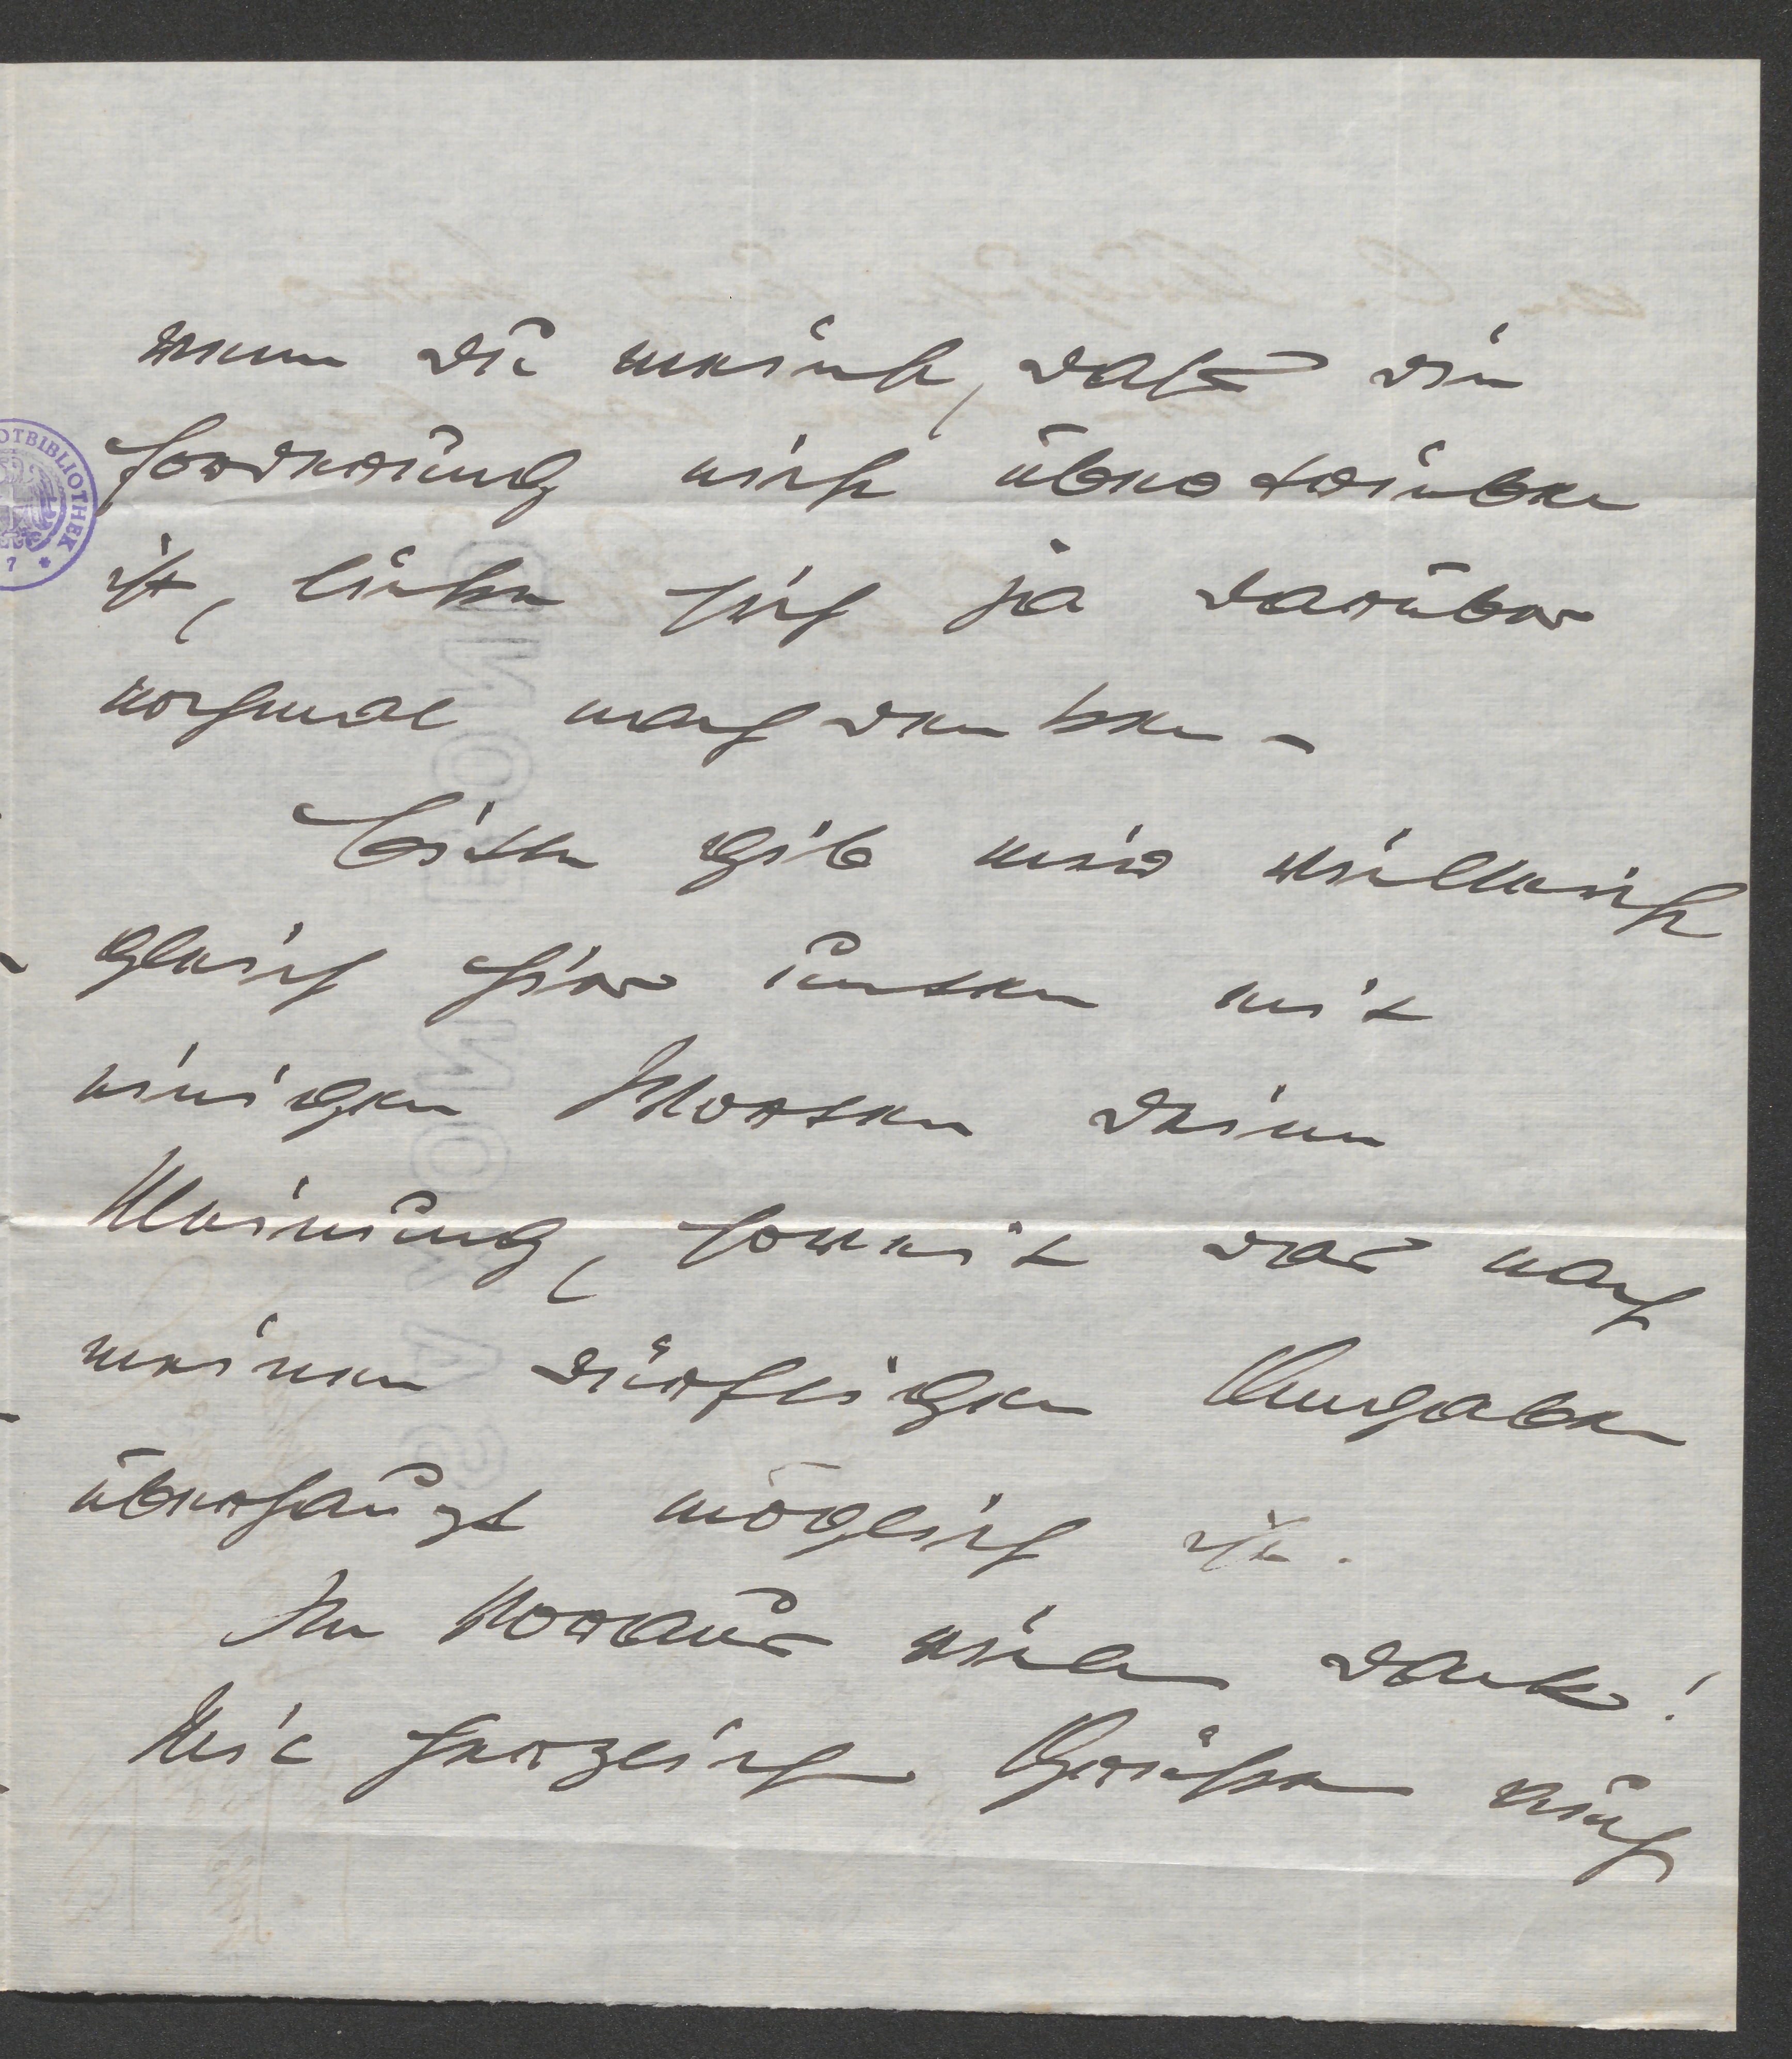 wenn du meinst, dass die
Forderung nicht übertrieben
ist, ließe sich ja darüber
nochmal nachdenken –
Bitte gib mir vielleicht
gleich hier unten mit
einigen Worten deine
Meinung, soweit das nach
meinen dürftigen Angaben
überhaupt möglich ist.
Im Voraus vielen Dank!
Mit herzlichen Grüßen auch
OTBIBLIOTHEK
7 *